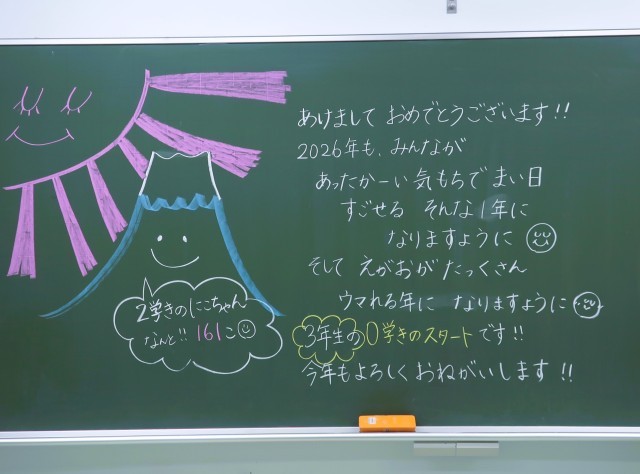 あけまして おめでとうございます!!
2026年も、みんなが
あったかーい 気もちで まい日
すごせる そんな 1年に
なりますように
そして えがおが たっくさん
ウマれる年に なりますように
3年生の0学きのスタートです!!
今年もよろしく おねがいします!!
2学きのにこちゃん
なんと!! 161こ